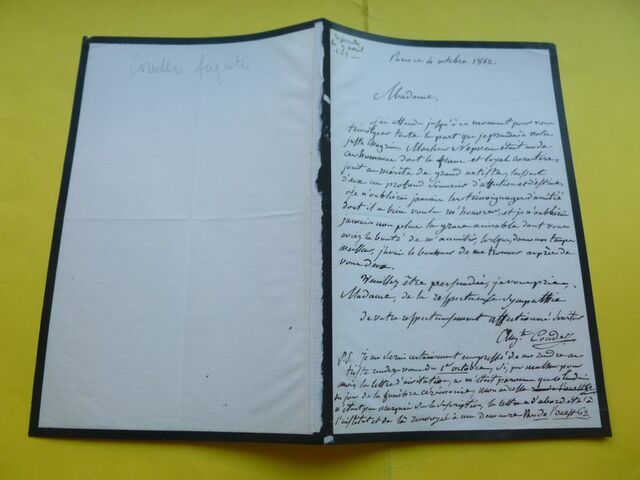 Couder auguste
répondu
le 9 avril
1863
Paris ce 4 octobre 1862.
Madame,
j'ai attendu jusqu'à ce moment pour vous
témoigner toute la part que je prends à votre
juste chagrin. Monsieur Nepveu était un de
ces hommes dont le franc et loyal caractère,
joint au mérite de grand artiste, laissent
d'eux un profond souvenir d'affection et d'estime.
je n'oublierai jamais les témoignages d'amitié
dont il a bien voulu m'honorer, et je n'oublierai
jamais non plus la grâce aimable dont vous
aviez la bonté de m'accueillir, lorsque, dans un temps
meilleur, j'avais le bonheur de me trouver auprès de
vous deux.
Veuillez être persuadée, je vous prie,
Madame, de la respectueuse sympathie
de votre respectueusement affectionné Serviteur
Aug.te Couder
P.S. Je me serais certainement empressé de me rendre au
triste rendez-vous du 1er octobre, si, par malheur pour
moi, la lettre d'invitation, ne m'était parvenue que le lendemain
du jour de la funèbre cérémonie, mon adresse
n'étant pas marquée sur la suscription, la lettre a d'abord été à
l'institut et de là renvoyée à ma demeure Rue de l'ouest 62